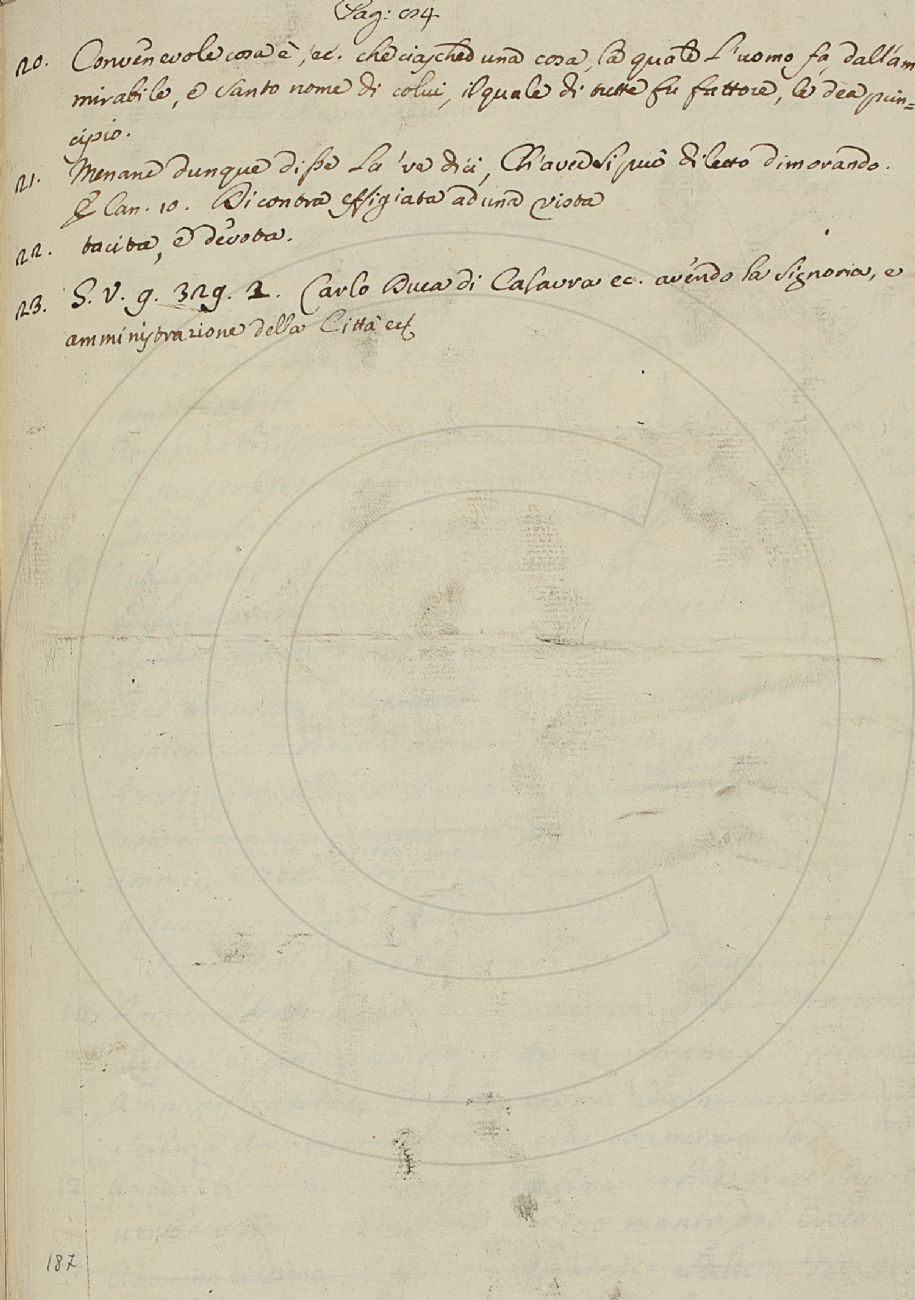 Pag: 94
20. Convenevole cosa è, ec. che ciasched una cosa, la quale l'uomo fa, dall'am
mirabile, e santo nome di colui, il quale di tutte fu fattore, le dea prin=
cipio.
21. Menane dunque disse La 've dici, Ch'aver si può diletto dimorando.
E Can. 10. Di contra effigiata ad una vista
22. tacita, e devota.
23. S. V. g. 329. 2. Carlo Duca di Calavra ec. avendo la signoria, e
amministrazione della Città ec
187